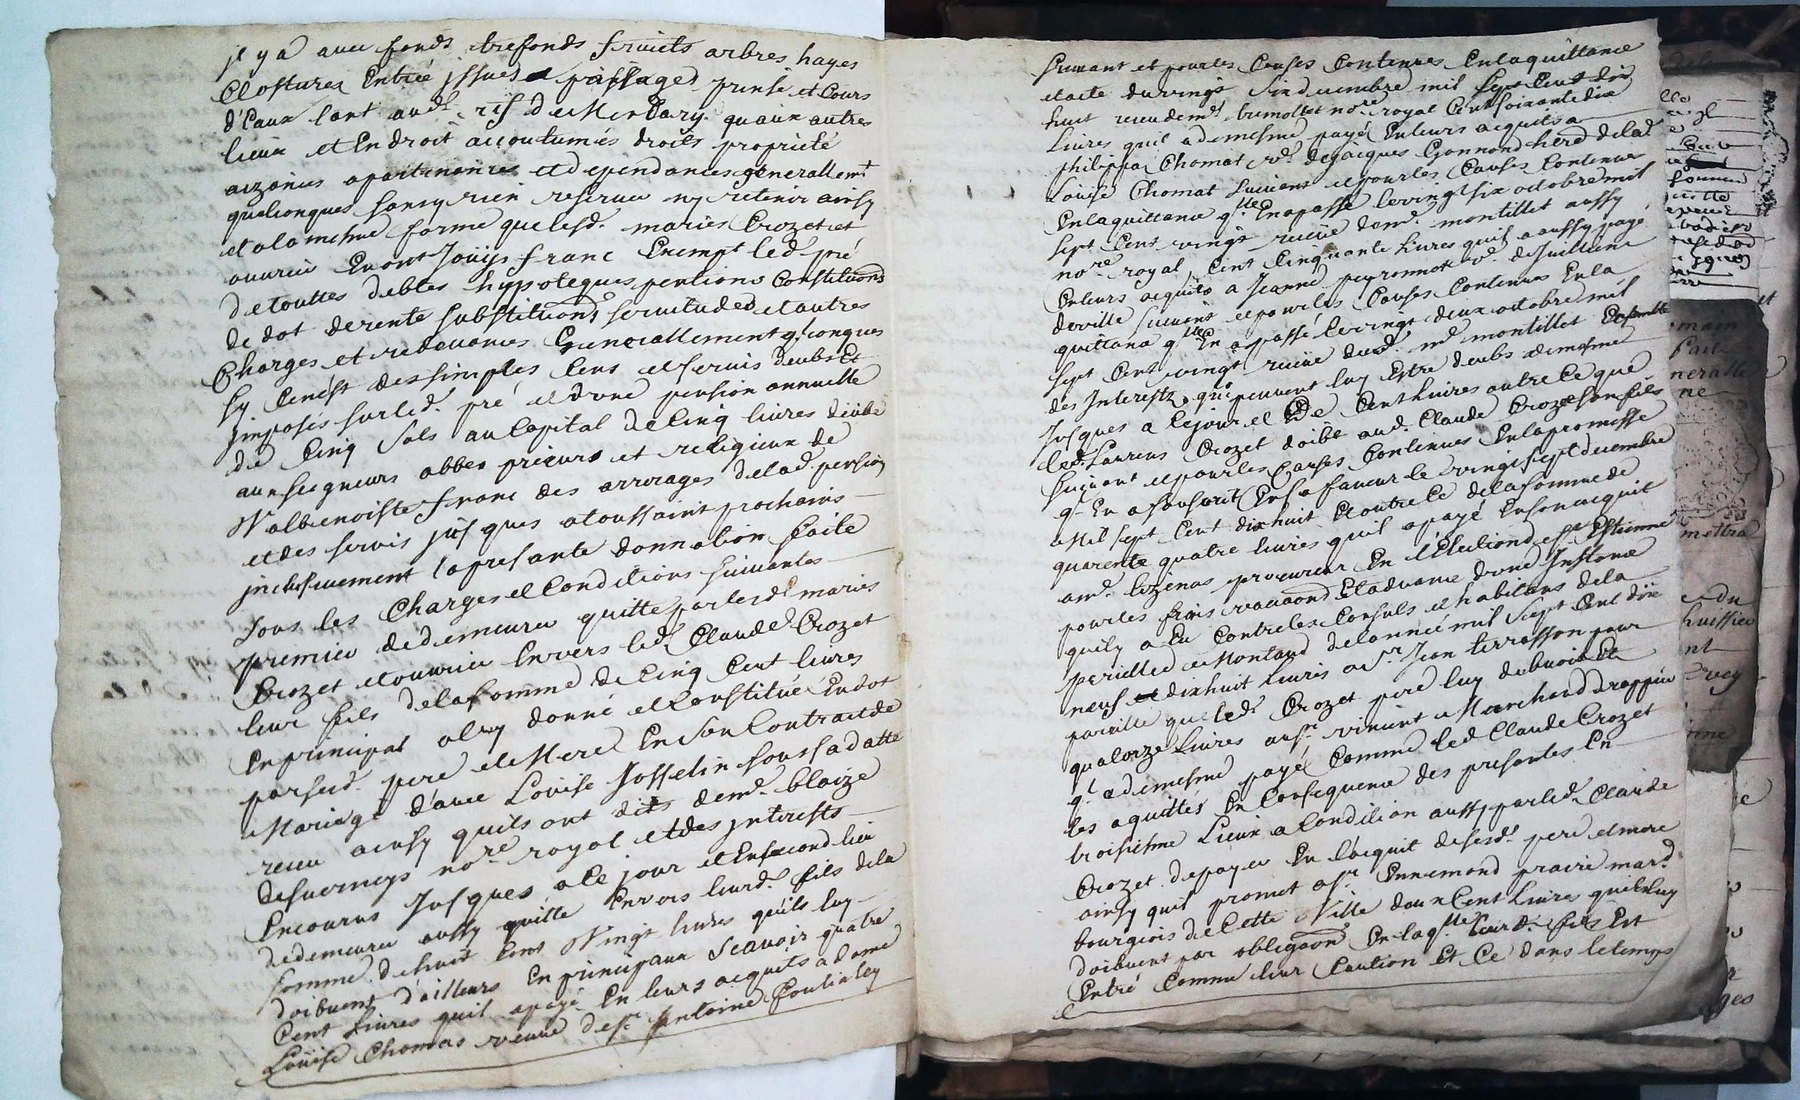 jl y a avec fonds trefonds fruicts arbres hayes
Clostures Entrée jssues et passages prinse et Cours
d'Eaux tant aud. rif De Merdary quaux autres
lieux et Endroit accoutumés droits propriété
aizanies apartenances et dependances generallemt
quelconques sans y rien reserver ny retenir ainsy
et a la mesme forme que lesd. maries Crozet et
ouvrier En ont Jouijs franc Exempt led. pré
de touttes debtes hypoteques pentions Constitutions
de dot de rente substitutions servitudes et autres
Charges et redevances Generallement qlconques
sy Cenést des simples Cens et servis deubs et
jmposés sur led. pré et dune pension annuelle
de Cinq sols au Capital de Cinq livres deübe
aux seigneurs abbes prieurs et religieux de
Valbenoiste franc des arrerages de lad. pension
et des servis jusques a toussaint prochains
jnclusivement la presante donnation faite
sous les Charges et Conditions suivantes
premier de demeurer quitte par lesd. maries
Crozet et ouvrier Envers led. Claude Crozet
leur fils de la somme de Cinq Cent livres
En principal a luy donné et Constitué En dot
par sesd. pere et Mere En son Contract de
Mariage d'avec Louise Josselin soub sa datte
receu ainsy quils ont dits de me. blaize
Desverneys nore. royal et des jnterests
Encourus Jusques a Ce jour et En second lieu
de demeurer aussy quitte Envers leurd. fils de la
somme de huit Cent Vingt livres quils luy
doibvent d'ailleurs En principaux Scavoir quatre
Cent livres quil a payé En leurs acquits a dame
Loüise Chomas veuve de sr. Antoine
Suivant et pour les Causes Contenues En la quittance
et acte du vingt decembre mil sept Cent dix
huit receu de me. nore. royal Cent soixante dix
livres quil a de mesme payé En leurs acquits a
philippa Chomat ve. de Jacques Gonnond herd. de lad.
Loüise Chomat suivant et pour les Causes Contenues
En la quittance qlle En a passé le vingt six octobre mil
sept Cent vingt receüe de me. montillet aussy
nore. royal Cent Cinquante livres quil a aussy payé
En leurs acquits a Jeanne peyronnet ve. de Juillien
deville suivant et pour les Causes Contenues En la
quittance qlle En a passé le vingt deux octobre mil
sept Cent vingt receüe dud. me. montillet Ensemble
des Interests qui peuvent luy Estre deubs de mesme
Jusques a Ce jour et De Cent livres outre Ce que
led. Laurens Crozet doibt aud. Claude Crozet son fils
suivant et pour les Causes Contenues En la promesse
ql En a souscrit En sa faveur le vingt sept decembre
Mil sept Cent dix huit Et outre Ce de la somme de
quarente quatre livres quil a payé En son acquit
a me. procureur En l'Election de st. Estienne
pour les frais vaccaons. Et advance dune Instance
quil y a Eu Contre les Consuls et habitans de la
de lannée mil sept Cent dix
neuf dixhuit livres a sr. Jean terrasson pour
pareille que led. Crozet pere luy debvoit Et
quatorze livres au sr. vincent Marchand drappier
ql a de mesme payé Comme led. Claude Crozet
les a quittés En Consequence des presentes En
troisiesme Lieux a Condition aussy par led. Claude
Crozet de payer En l'acquit de sesd. pere et mere
ainsy quil promet a sr. Ennemond prairé mard.
bourgeois de Cette Ville deux Cent livres quil luy
doibvent par obligaon. En laqlle. leurd. fils Est
Entré Comme leur Caution Et Ce dans le temps